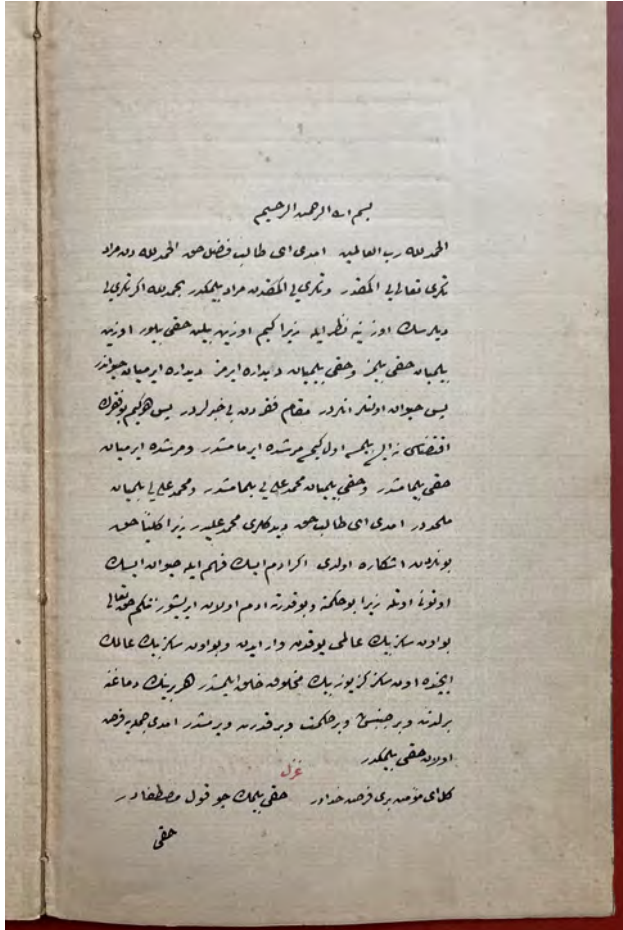 بسم الله الرحمن الرحيم
الحمد لله رب العالمين امدى اى طالب فضل حق الحمد لله دن مراد
تكرى تعالى يى اكمقدر و تكرى يى اكمقدن مراد بيلمكدر بحمد لله اكر تكرى يى
ديلرسك اوزينه نظر ايله زيرا كيم اوزين بيلن حقى بيلور اوزين
بيلميان حقى بيلمز وحقى بيلميان ديداره ايرمز ديداره ايرميان حيواندر
پس حيوان اولنلر انلردر مقام فقردن بى خبرلردر پس هركيم بو فقرك
اقتضاسى نه ايسه بيلمسه اول كيمسه مرشده ايرمامشدر ومرشده ايرميان
حقى بيلمامشدر وحقى بيلميان محمد على يى بيلمامشدر ومحمد على يى بيلميان
ملحددر امدى اى طالب حق ديدكلرى محمد عليدر زيرا كليتا حق
بونلردن اشكاره اولدى اكر ادم ايسك فهم ايله حيوان ايسك
اوتونى اوتله زيرا بو حكمته وبو قدرته ادم اولان اريشور نتكم حق تعالى
بو اون سكز بيك عالمى يوقدن وار ايدن وبو اون سكز بيك عالمك
ايچنده اون سكز كز يوز بيك مخلوق خلق ايلمشدر هر برينك دماغنه
بر لذت وبر جنبش وبر حكمت وبر قدرت ويرمشدر امدى جمله يه فرض
اولان حقى بيلمكدر
غزل
كل اى مؤمن برى فرض خدادر حقى بيلمك چو قول مصطفادر
حقى